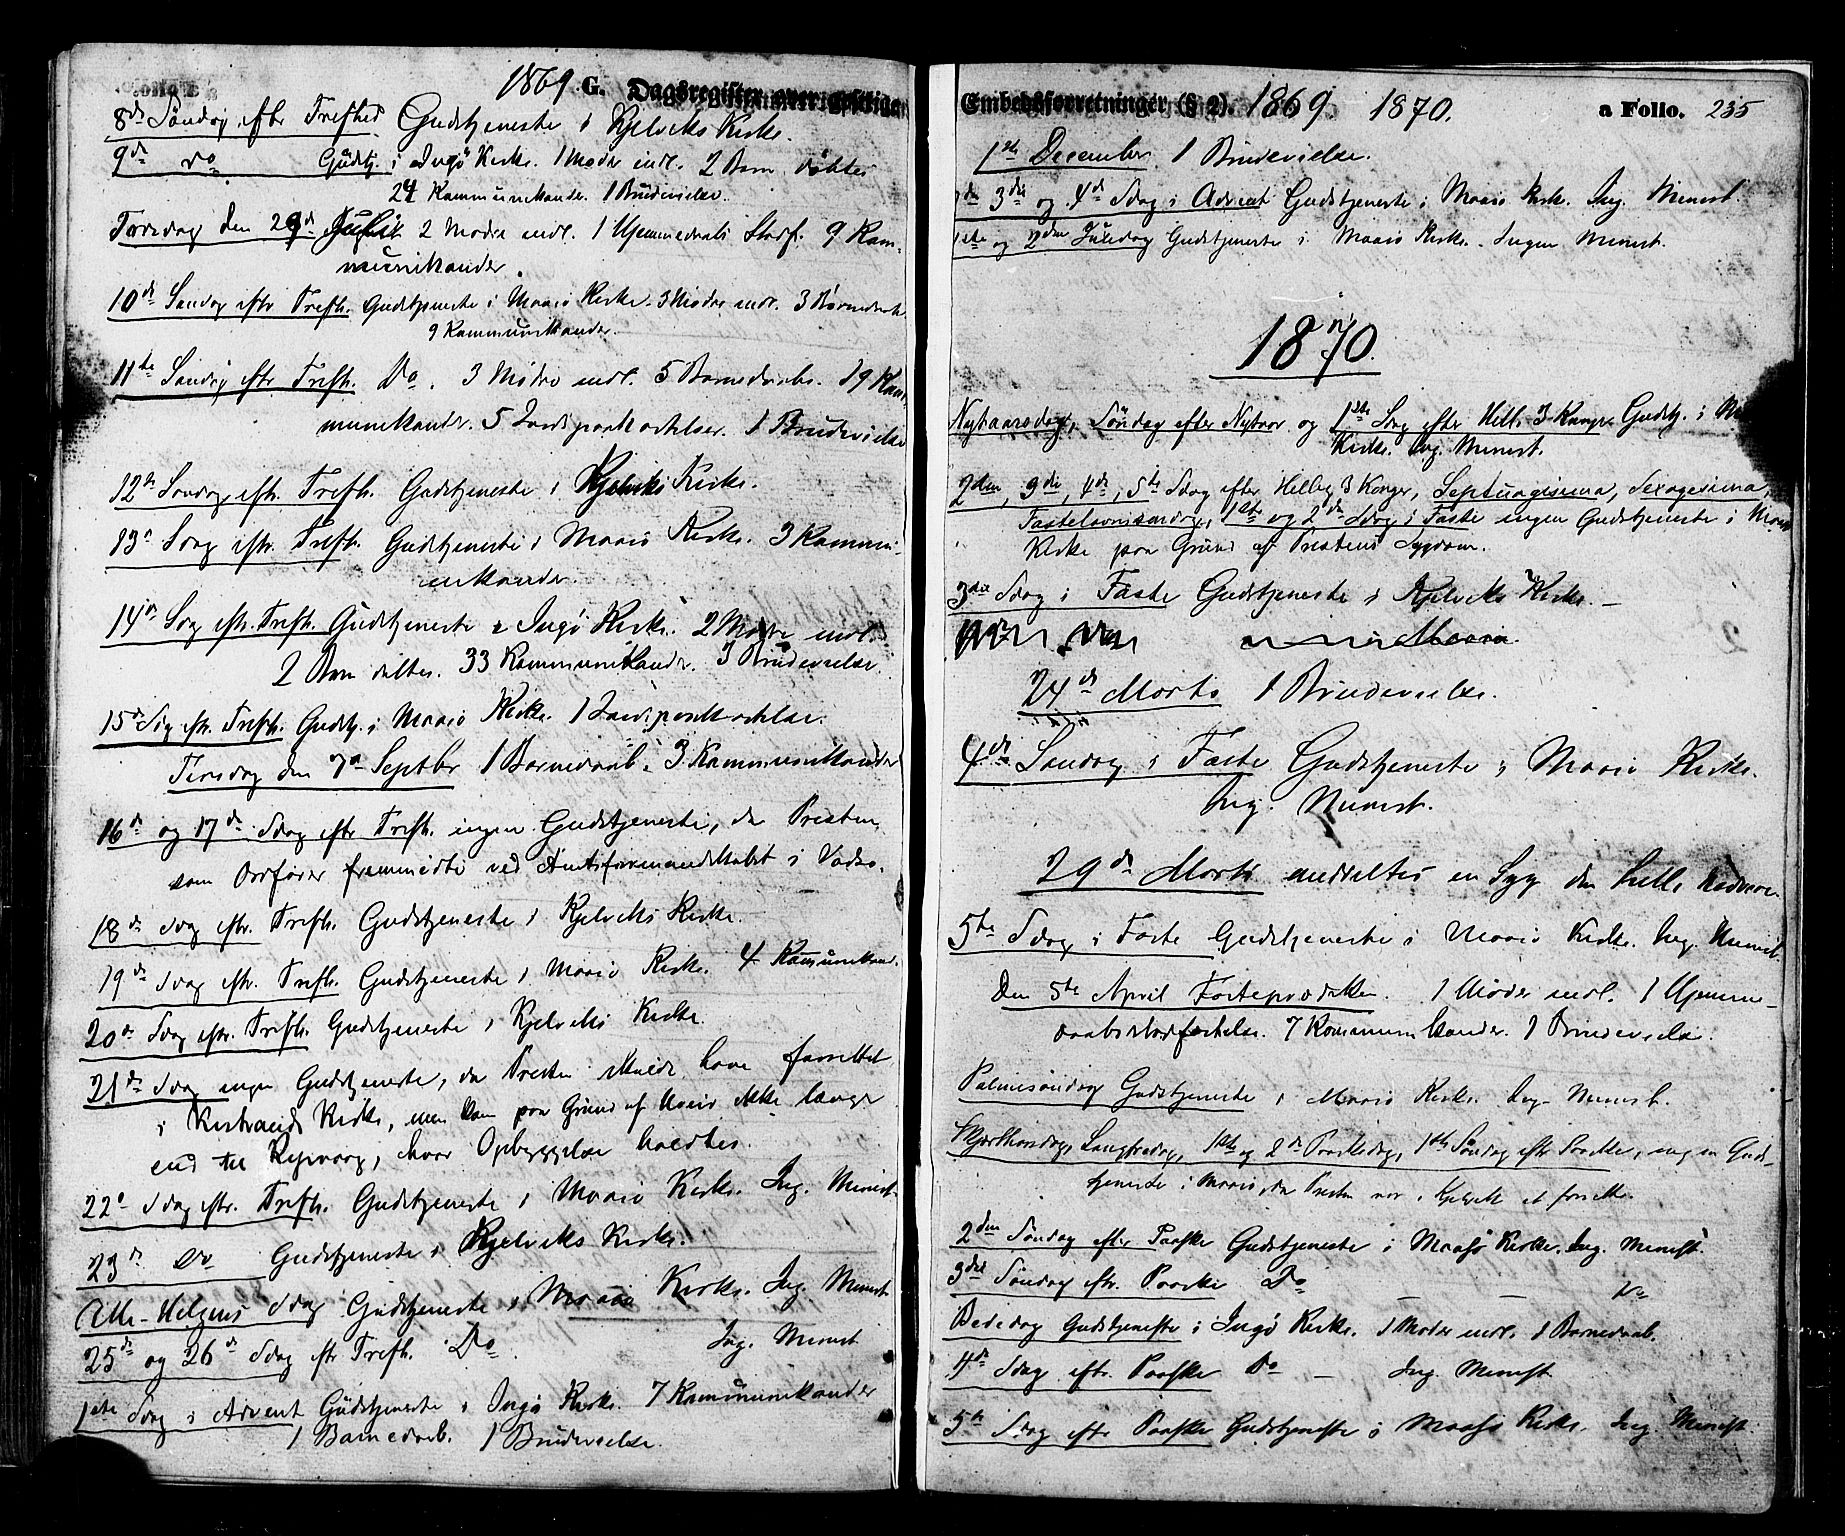 1869 G. Dagsregister over geistlige
8de Søndag eftr Trefhed Gudstjeneste i Kjelviks Kirke.
9de Do Gudstj. i Ingö Kirke. 1 Moder indl. 2 Børn døbtes
24 Kommunikander. 1 Brudevielse.
Torsdag den 29d Juli 2 Mødre indl. 1 Hjemmedaabs Stadf. 9 Kom-
munikander.
10de Søndag eftr Trefh. Gudstjeneste i Maasö Kirke. 3 Mødre indl. 3 Barnedaab.
9 Kommunikander.
11te Søndag eftr Trefh. Do. 3 Mødre indl. 5 Barnedaab. 19 Kom-
munikander. 5 Jordspaakastelser. 1 Brudevielse
12te Søndag eftr. Trefh. Gudstjeneste i Kjelviks Kirke.
13de Sdag eftr. Trefh. Gudstjeneste i Maasö Kirke. 3 Kommu-
nikander.
14de Sdag eftr. Trefh. Gudstjeneste i Ingø Kirke. 2 Mødre indl.
2 Børn døbtes. 33 Kommunikander. 3 Brudevielse.
15de Sdg eftr. Trefh. Gudstj. i Maasö Kirke. 1 Jordspaakastelse.
Tirsdag den 7de Septbr 1 Barnedaab. 3 Kommunikander
16de og 17de Sdag eftr Trefh. ingen Gudstjeneste, da Presten,
som Ordfører fremmødte ved Amtsformandskabet i Vadsø.
18de Sdag eftr. Trefh. Gudstjeneste i Kjelviks Kirke.
19de Sdag eftr. Trefh. Gudstjeneste i Maasö Kirke. 4 Komunikand.
20de Sdag eftr. Trefh. Gudstjeneste i Kjelviks Kirke.
21de Sdag ingen Gudstjeneste, da Presten skulde have forrettet
i Kistrands Kirke, men kom paa Grund af Uveir ikke længr
end til Repvaag, hvor Opbyggelse holdtes.
22de Sdag eftr. Trefh. Gudstjeneste i Maasö Kirke. Ing. Minist.
23de Do Gudstjeneste i Kjelviks Kirke.
Alle-Helgens Sdag Gudstjeneste i Maasö Kirke. Ing. Minist
25de og 26de Sdag eftr Trefh. Do. Ing. Minist
1ste Sdag i Advent Gudstjeneste i Ingø Kirke. 7 Kommunikander
1 Barnedaab. 1 Brudevielse.
Embedsforretninger (§ 2). 1869 1870. a Folio. 235
1ste December 1 Brudevielse.
2den 3die og 4de Sdag i Advent Gudstjeneste i Maasö Kirke. Ing. Minist.
1ste og 2den Juledag Gudstjeneste i Maasö Kirke. Ingen Minist.
1870.
Nytaarsdag, Søndag efter Nytaar og 1ste Sdag efter Hell. 3 Konger Gudstj. i
Kirke. Ing. Minist.
2den, 3die, 4de, 5te Sdag efter Hellig 3 Konger, Septuagisima, Sexagesima,
Fastelavnsøndag, 1ste og 2de Sdag i Faste ingen Gudstjeneste i Maasö
Kirke paa Grund af Prestens Sygdom.
3die Sdag i Faste Gudstjeneste i Kjelviks Kirke. —
Maasö.
24de Marts 1 Brudevielse.
4de Søndag i Faste Gudstjeneste i Maasö Kirke.
Ing. Minist.
29de Marts meddeltes en Syg den hell. Nadvere.
5te Sdag i Faste Gudstjeneste i Maasö Kirke. Ing. Minist.
Den 5te April Fasteprædiken. 1 Moder indl. 1 Hjemme-
daabsstadfæstelse. 7 Kommunikander. 1 Brudevielse.
Palmesöndag Gudstjeneste i Maasö Kirke. Ing. Minist.
Skjærthorsdag, Langfredag, 1ste og 2de Paaskedag, 1ste Søndag eftr Paaske, ingen Guds-
tjeneste i Maasö, da Presten var i Kjelvik at forrette.
2den Søndag efter Paaske Gudstjeneste i Maasö Kirke. Ing. Minist.
3die Søndag eftr. Paaske Do — — Do
Bededag Gudstjeneste i Ingø Kirke. 1 Moder indl. 1 Barnedaab.
4de Sdag eftr. Paaske Do — Ing. Minist
5te Sdag eftr Paaske Gudstjeneste i Maasø Kirke. Ing. Minist.